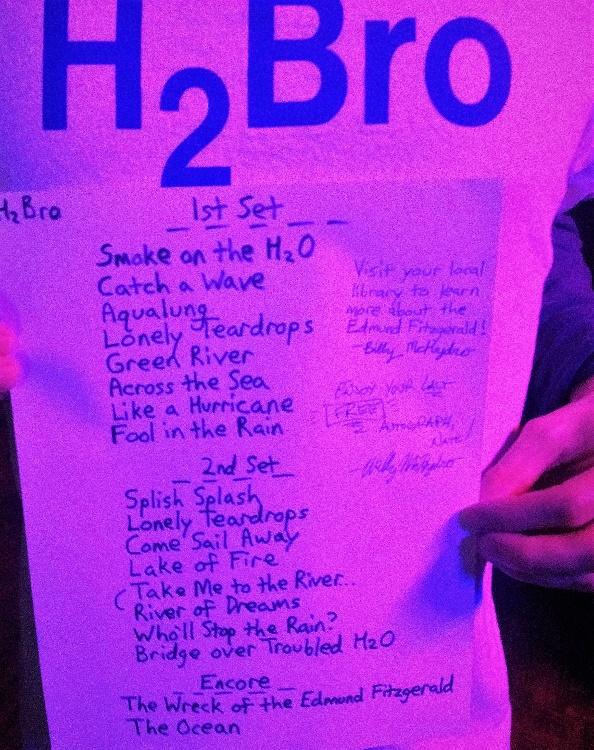 H₂Bro
H₂Bro
1st Set
Smoke on the H₂O
Catch a Wave
Aqualung
Lonely Teardrops
Green River
Across the Sea
Like a Hurricane
Fool in the Rain
Visit your local
library to learn
more about the
Edmund Fitzgerald!
-Billy McHydro
Enjoy your last
FREE
Autograph,
Nate!
-Willy McHydro
2nd Set
Splish Splash
Lonely Teardrops
Come Sail Away
Lake of Fire
(Take Me to the River...
River of Dreams
Who'll Stop the Rain?
Bridge over Troubled H₂O
Encore
The Wreck of the Edmund Fitzgerald
The Ocean